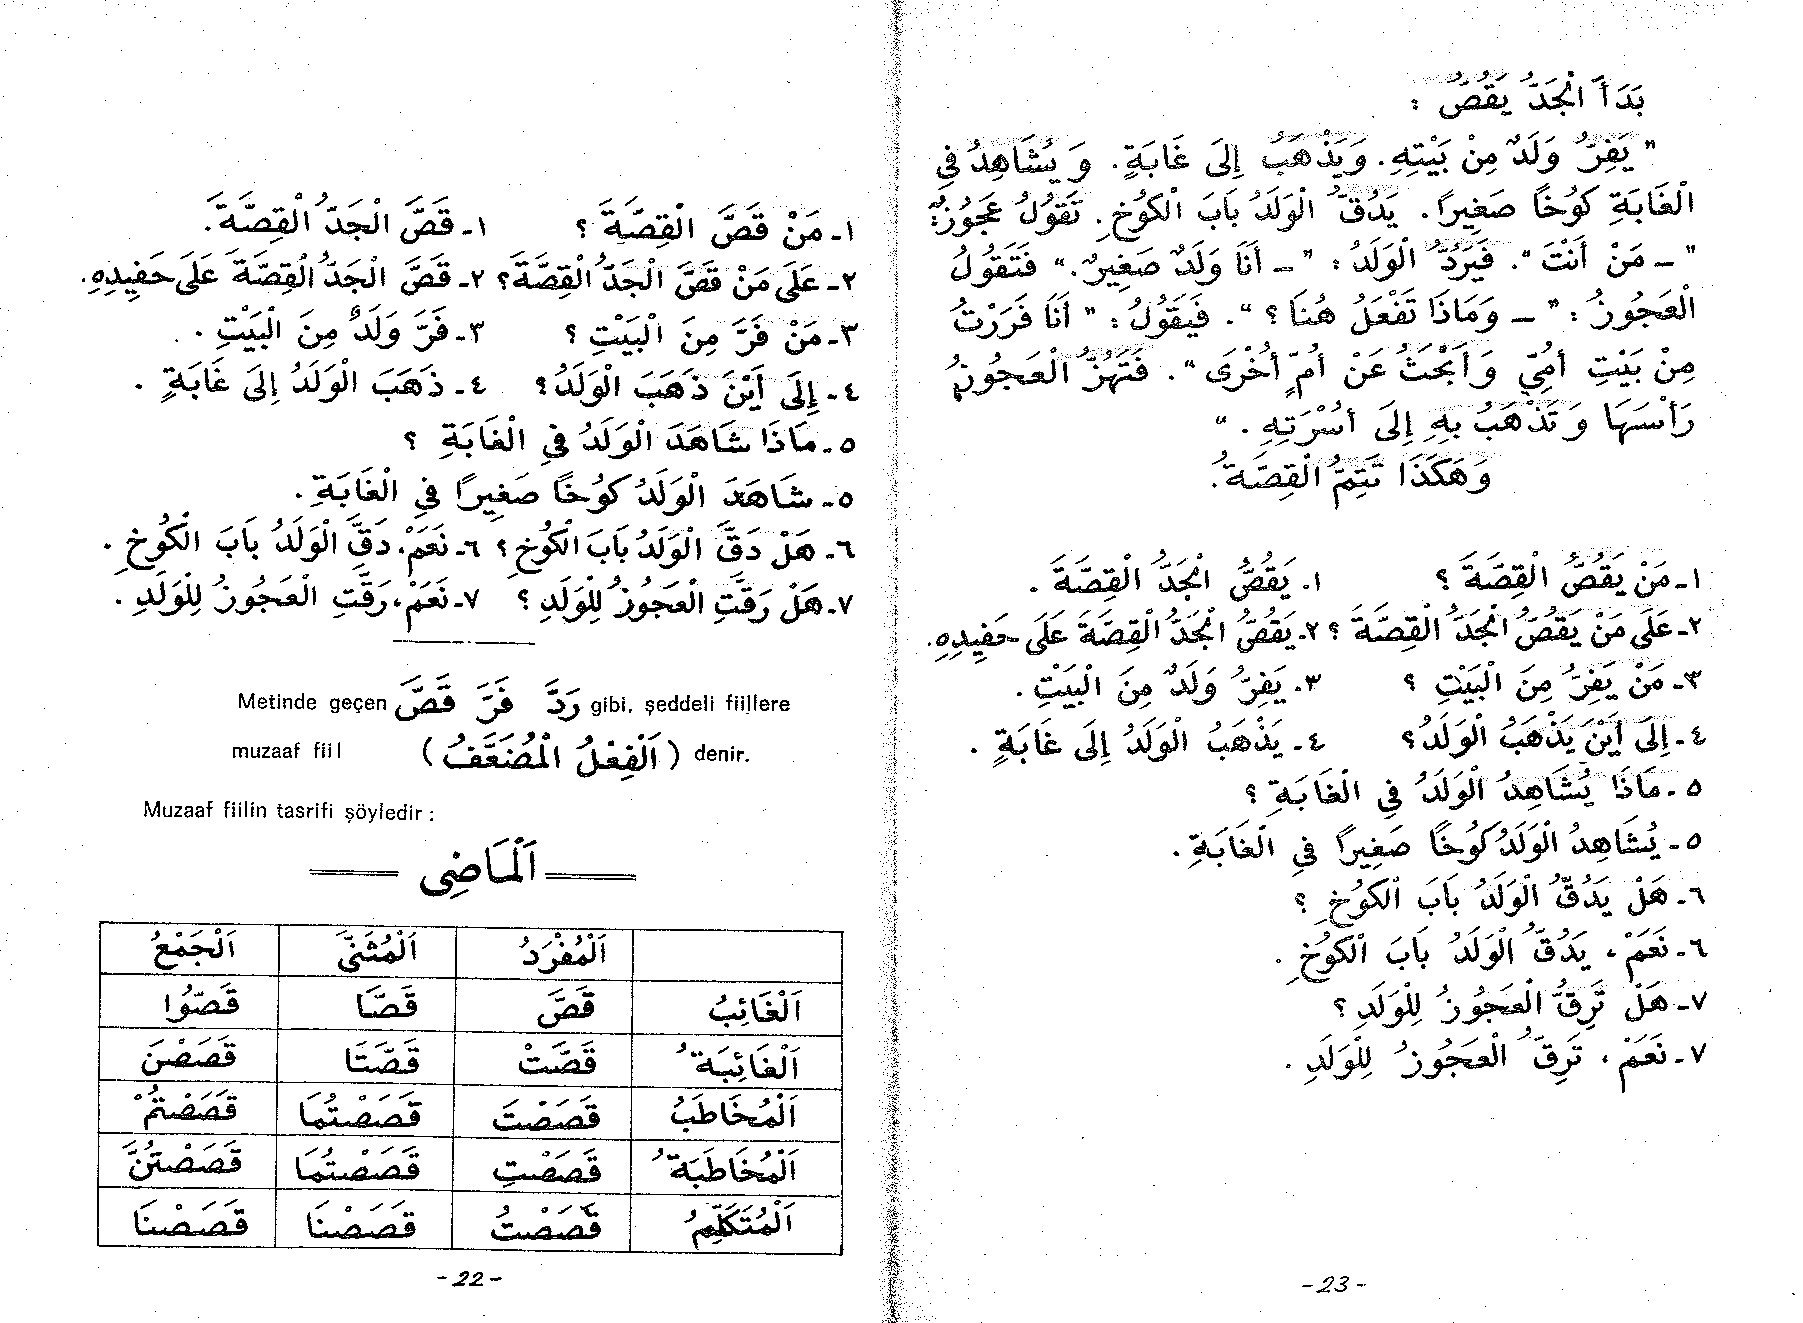 ١- مَنْ قَصَّ الْقِصَّةَ ؟ ١- قَصَّ الْجَدُّ الْقِصَّةَ.
٢- عَلَى مَنْ قَصَّ الْجَدُّ الْقِصَّةَ؟ ٢- قَصَّ الْجَدُّ الْقِصَّةَ عَلَى حَفِيدِهِ.
٣- مَنْ فَرَّ مِنَ الْبَيْتِ ؟ ٣- فَرَّ وَلَدٌ مِنَ الْبَيْتِ .
٤- إِلَى أَيْنَ ذَهَبَ الْوَلَدُ؟ ٤- ذَهَبَ الْوَلَدُ إِلَى غَابَةٍ .
٥- مَاذَا شَاهَدَ الْوَلَدُ فِي الْغَابَةِ ؟
٥- شَاهَدَ الْوَلَدُ كُوخًا صَغِيرًا فِي الْغَابَةِ.
٦- هَلْ دَقَّ الْوَلَدُ بَابَ الْكُوخِ؟ ٦- نَعَمْ، دَقَّ الْوَلَدُ بَابَ الْكُوخِ.
٧- هَلْ رَقَّتِ الْعَجُوزُ لِلْوَلَدِ ؟ ٧- نَعَمْ، رَقَّتِ الْعَجُوزُ لِلْوَلَدِ .
Metinde geçen رَدَّ فَرَّ قَصَّ gibi, şeddeli fiillere
muzaaf fiil (اَلْفِعْلُ الْمُضَعَّفُ) denir.
Muzaaf fiilin tasrifi şöyledir :
اَلْمَاضِى
اَلْمُفْرَدُ اَلْمُثَنَّى اَلْجَمْعُ
اَلْغَائِبُ قَصَّ قَصَّا قَصُّوا
اَلْغَائِبَةُ قَصَّتْ قَصَّتَا قَصَصْنَ
اَلْمُخَاطَبُ قَصَصْتَ قَصَصْتُمَا قَصَصْتُمْ
اَلْمُخَاطَبَةُ قَصَصْتِ قَصَصْتُمَا قَصَصْتُنَّ
اَلْمُتَكَلِّمُ قَصَصْتُ قَصَصْنَا قَصَصْنَا
-22-
بَدَأَ الْجَدُّ يَقُصُّ :
" يَفِرُّ وَلَدٌ مِنْ بَيْتِهِ. وَيَذْهَبُ إِلَى غَابَةٍ. وَ يُشَاهِدُ فِي
الْغَابَةِ كُوخًا صَغِيرًا. يَدُقُّ الْوَلَدُ بَابَ الْكُوخِ. تَقُولُ عَجُوزٌ:
" - مَنْ أَنْتَ ". فَيَرُدُّ الْوَلَدُ : " - أَنَا وَلَدٌ صَغِيرٌ." فَتَقُولُ
الْعَجُوزُ : " - وَمَاذَا تَفْعَلُ هُنَا ؟ ". فَيَقُولُ : " أَنَا فَرَرْتُ
مِنْ بَيْتِ أُمِّي وَ أَبْحَثُ عَنْ أُمٍّ أُخْرَى ". فَتَهُزُّ الْعَجُوزُ
رَأْسَهَا وَ تَذْهَبُ بِهِ إِلَى أُسْرَتِهِ . "
وَ هَكَذَا تَتِمُّ الْقِصَّةُ.
١- مَنْ يَقُصُّ الْقِصَّةَ ؟ ١. يَقُصُّ الْجَدُّ الْقِصَّةَ .
٢- عَلَى مَنْ يَقُصُّ الْجَدُّ الْقِصَّةَ ؟ ٢. يَقُصُّ الْجَدُّ الْقِصَّةَ عَلَى حَفِيدِهِ.
٣- مَنْ يَفِرُّ مِنَ الْبَيْتِ ؟ ٣. يَفِرُّ وَلَدٌ مِنَ الْبَيْتِ .
٤- إِلَى أَيْنَ يَذْهَبُ الْوَلَدُ؟ ٤- يَذْهَبُ الْوَلَدُ إِلَى غَابَةٍ .
٥- مَاذَا يُشَاهِدُ الْوَلَدُ فِي الْغَابَةِ ؟
٥- يُشَاهِدُ الْوَلَدُ كُوخًا صَغِيرًا فِي الْغَابَةِ .
٦- هَلْ يَدُقُّ الْوَلَدُ بَابَ الْكُوخِ ؟
٦- نَعَمْ ، يَدُقُّ الْوَلَدُ بَابَ الْكُوخِ .
٧- هَلْ تَرِقُّ الْعَجُوزُ لِلْوَلَدِ ؟
٧- نَعَمْ ، تَرِقُّ الْعَجُوزُ لِلْوَلَدِ .
-23-